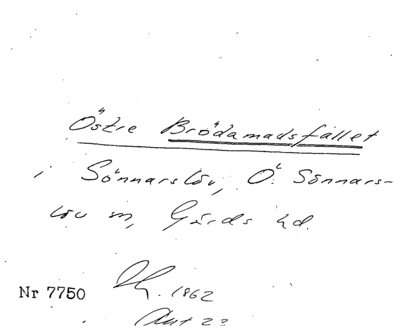 Östre Brödamadsfället
i Sönnarslöv, Ö. Sönnars-
löv sn, Gärds hd.
Nr 7750 Lk. 1862
Akt 23